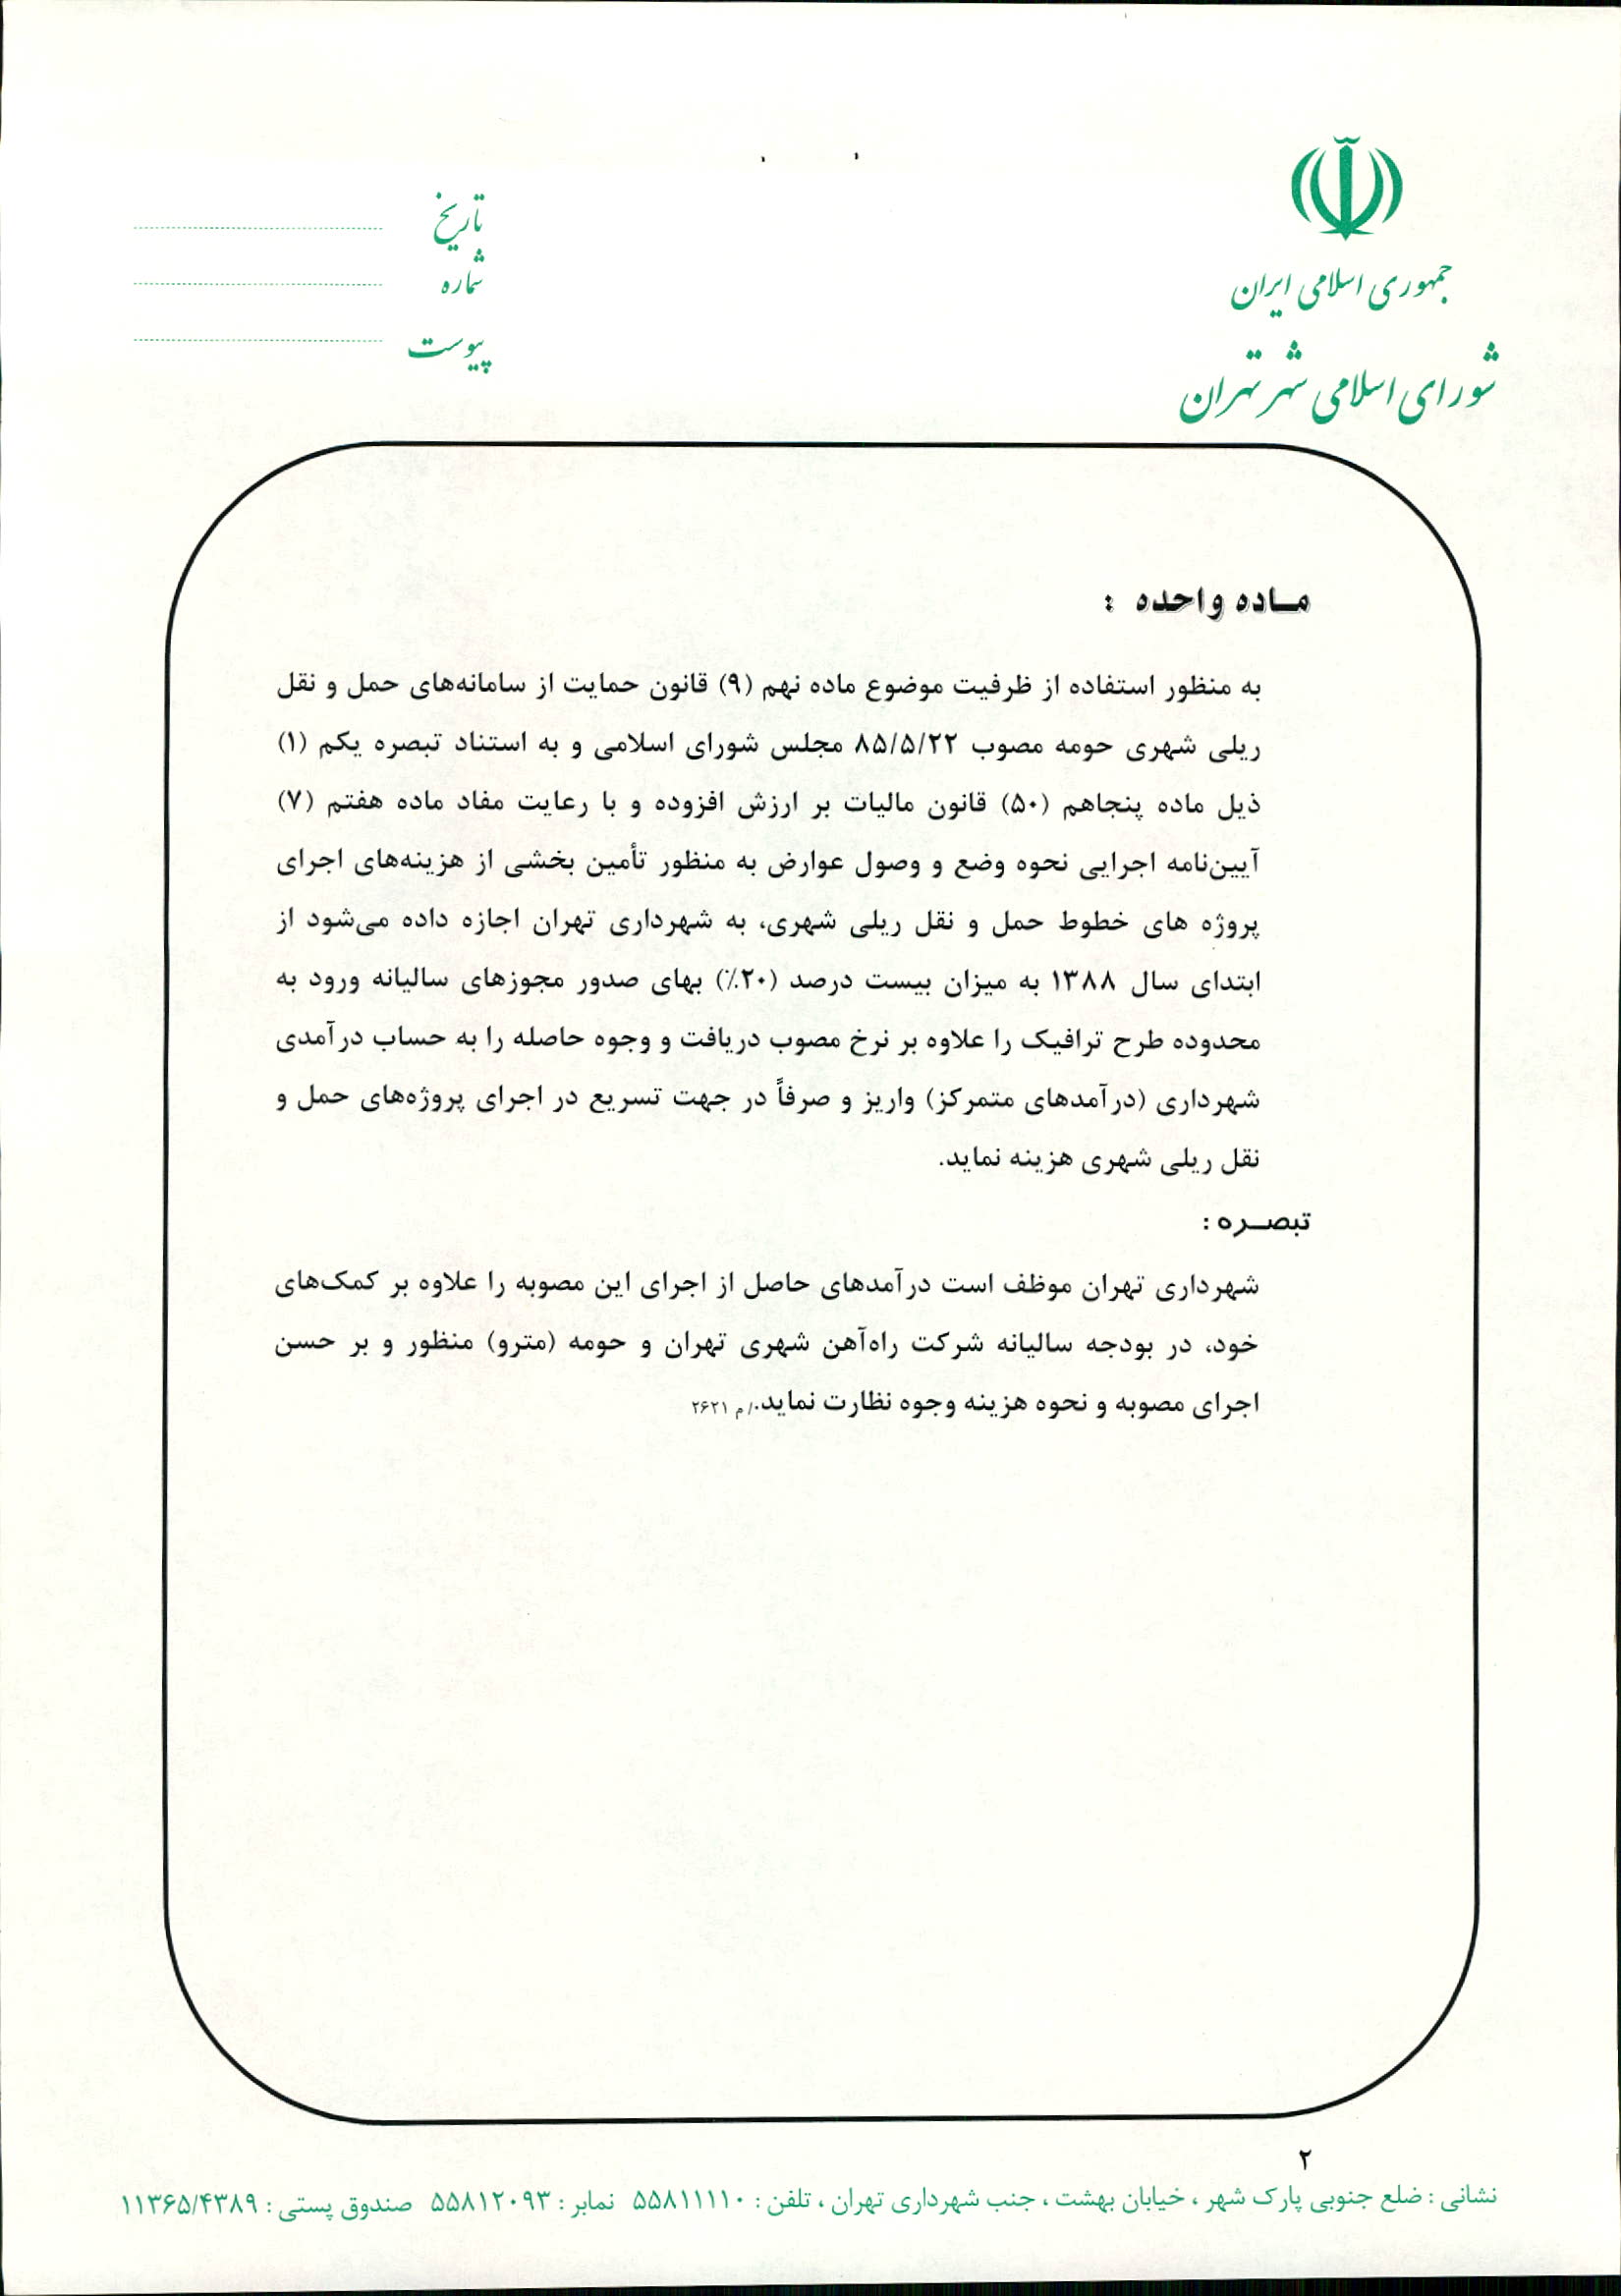 جمهوری اسلامی ایران
شورای اسلامی شهر تهران
تاریخ
شماره
پیوست
ماده واحده :
به منظور استفاده از ظرفیت موضوع ماده نهم (۹) قانون حمایت از سامانه‌های حمل و نقل
ریلی شهری حومه مصوب ۸۵/۵/۲۲ مجلس شورای اسلامی و به استناد تبصره یکم (۱)
ذیل ماده پنجاهم (۵۰) قانون مالیات بر ارزش افزوده و با رعایت مفاد ماده هفتم (۷)
آیین‌نامه اجرایی نحوه وضع و وصول عوارض به منظور تأمین بخشی از هزینه‌های اجرای
پروژه های خطوط حمل و نقل ریلی شهری، به شهرداری تهران اجازه داده می‌شود از
ابتدای سال ۱۳۸۸ به میزان بیست درصد (۲۰٪) بهای صدور مجوزهای سالیانه ورود به
محدوده طرح ترافیک را علاوه بر نرخ مصوب دریافت و وجوه حاصله را به حساب درآمدی
شهرداری (درآمدهای متمرکز) واریز و صرفاً در جهت تسریع در اجرای پروژه‌های حمل و
نقل ریلی شهری هزینه نماید.
تبصره :
شهرداری تهران موظف است درآمدهای حاصل از اجرای این مصوبه را علاوه بر کمک‌های
خود، در بودجه سالیانه شرکت راه‌آهن شهری تهران و حومه (مترو) منظور و بر حسن
اجرای مصوبه و نحوه هزینه وجوه نظارت نماید./ م ۲۶۲۱
۲
نشانی : ضلع جنوبی پارک شهر ، خیابان بهشت ، جنب شهرداری تهران ، تلفن : ۵۵۸۱۱۱۱۰ نمابر : ۵۵۸۱۲۰۹۳ صندوق پستی : ۱۱۳۶۵/۴۳۸۹